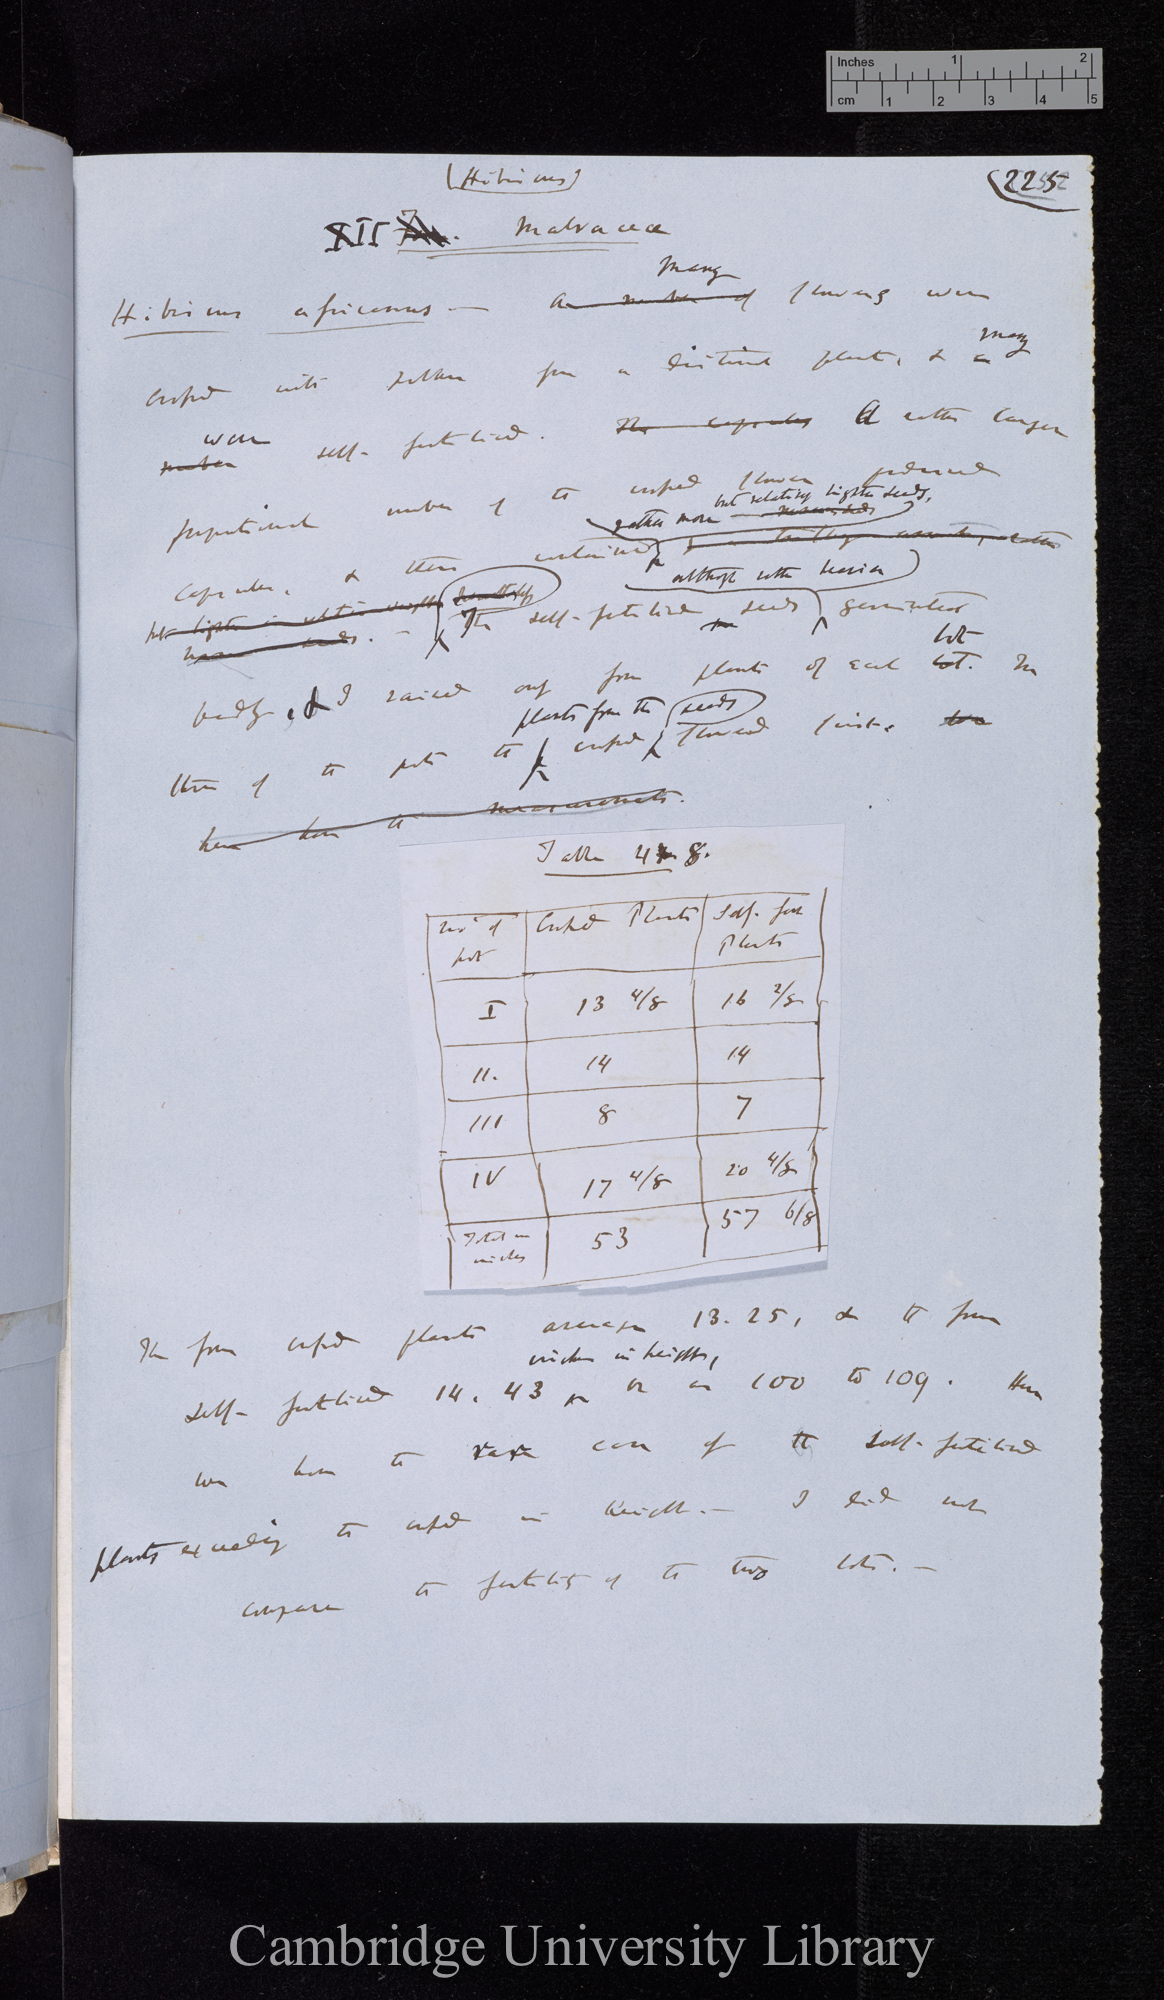 Inches 1 2
cm 1 2 3 4 5
(Hibiscus)
225
XII Malvaceæ
many
Hibiscus africanus — A number of flowers were
many
crossed with pollen from a distinct plant, & a
were
number self-fertilised. The capsules A rather larger
proportional number of the crossed flowers produced
but relatively lighter seeds,
rather more
capsules, & these contained
although rather heavier
The self-fertilised seeds germinated
lot
badly, & I raised only four plants of each lot. In
plants from the seeds
three of the pots the crossed flowered first.
here are the measurements.
Table 48.
No. of pot Crossed Plants Self-fert Plants
I 13 4/8 16 2/8
II. 14 14
III 8 7
IV 17 4/8 20 4/8
Total in inches 53 57 6/8
The four crossed plants average 13.25, & the four
inches in height,
self-fertilised 14.43 or as 100 to 109. Here
we have the rare case of the self-fertilised
plants exceeding the crossed in height. — I did not
compare the fertility of the two lots. —
Cambridge University Library